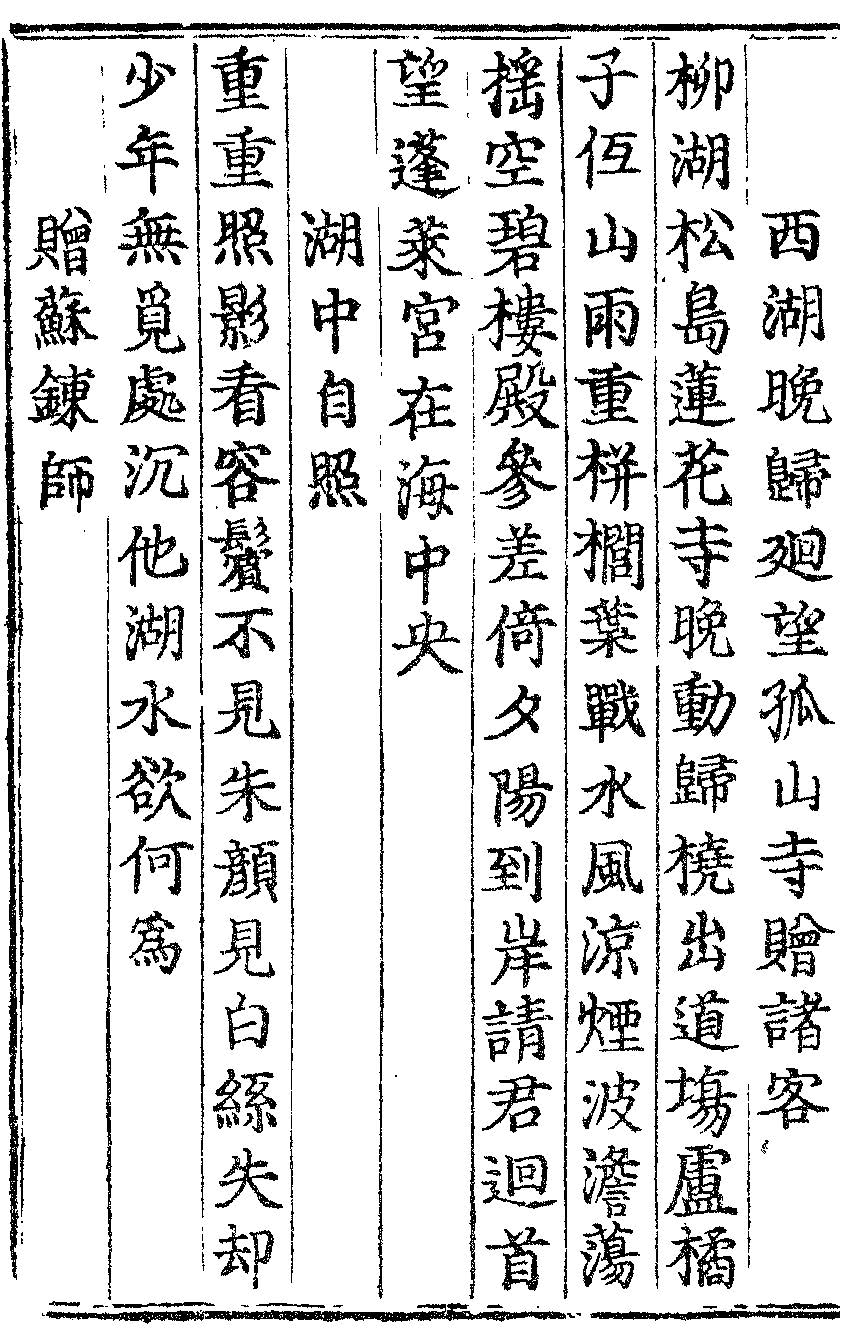 西湖晚歸廻望孤山寺贈諸客
柳湖松島蓮花寺晚動歸橈出道塲盧橘
子伍山雨重栟櫚葉戰水風涼煙波澹蕩
搖空碧樓殿參差倚夕陽到岸請君迴首
望蓬萊宮在海中央
湖中自照
重重照影看容鬢不見朱顔見白絲失却
少年無覓處沉他湖水欲何爲
贈蘇鍊師